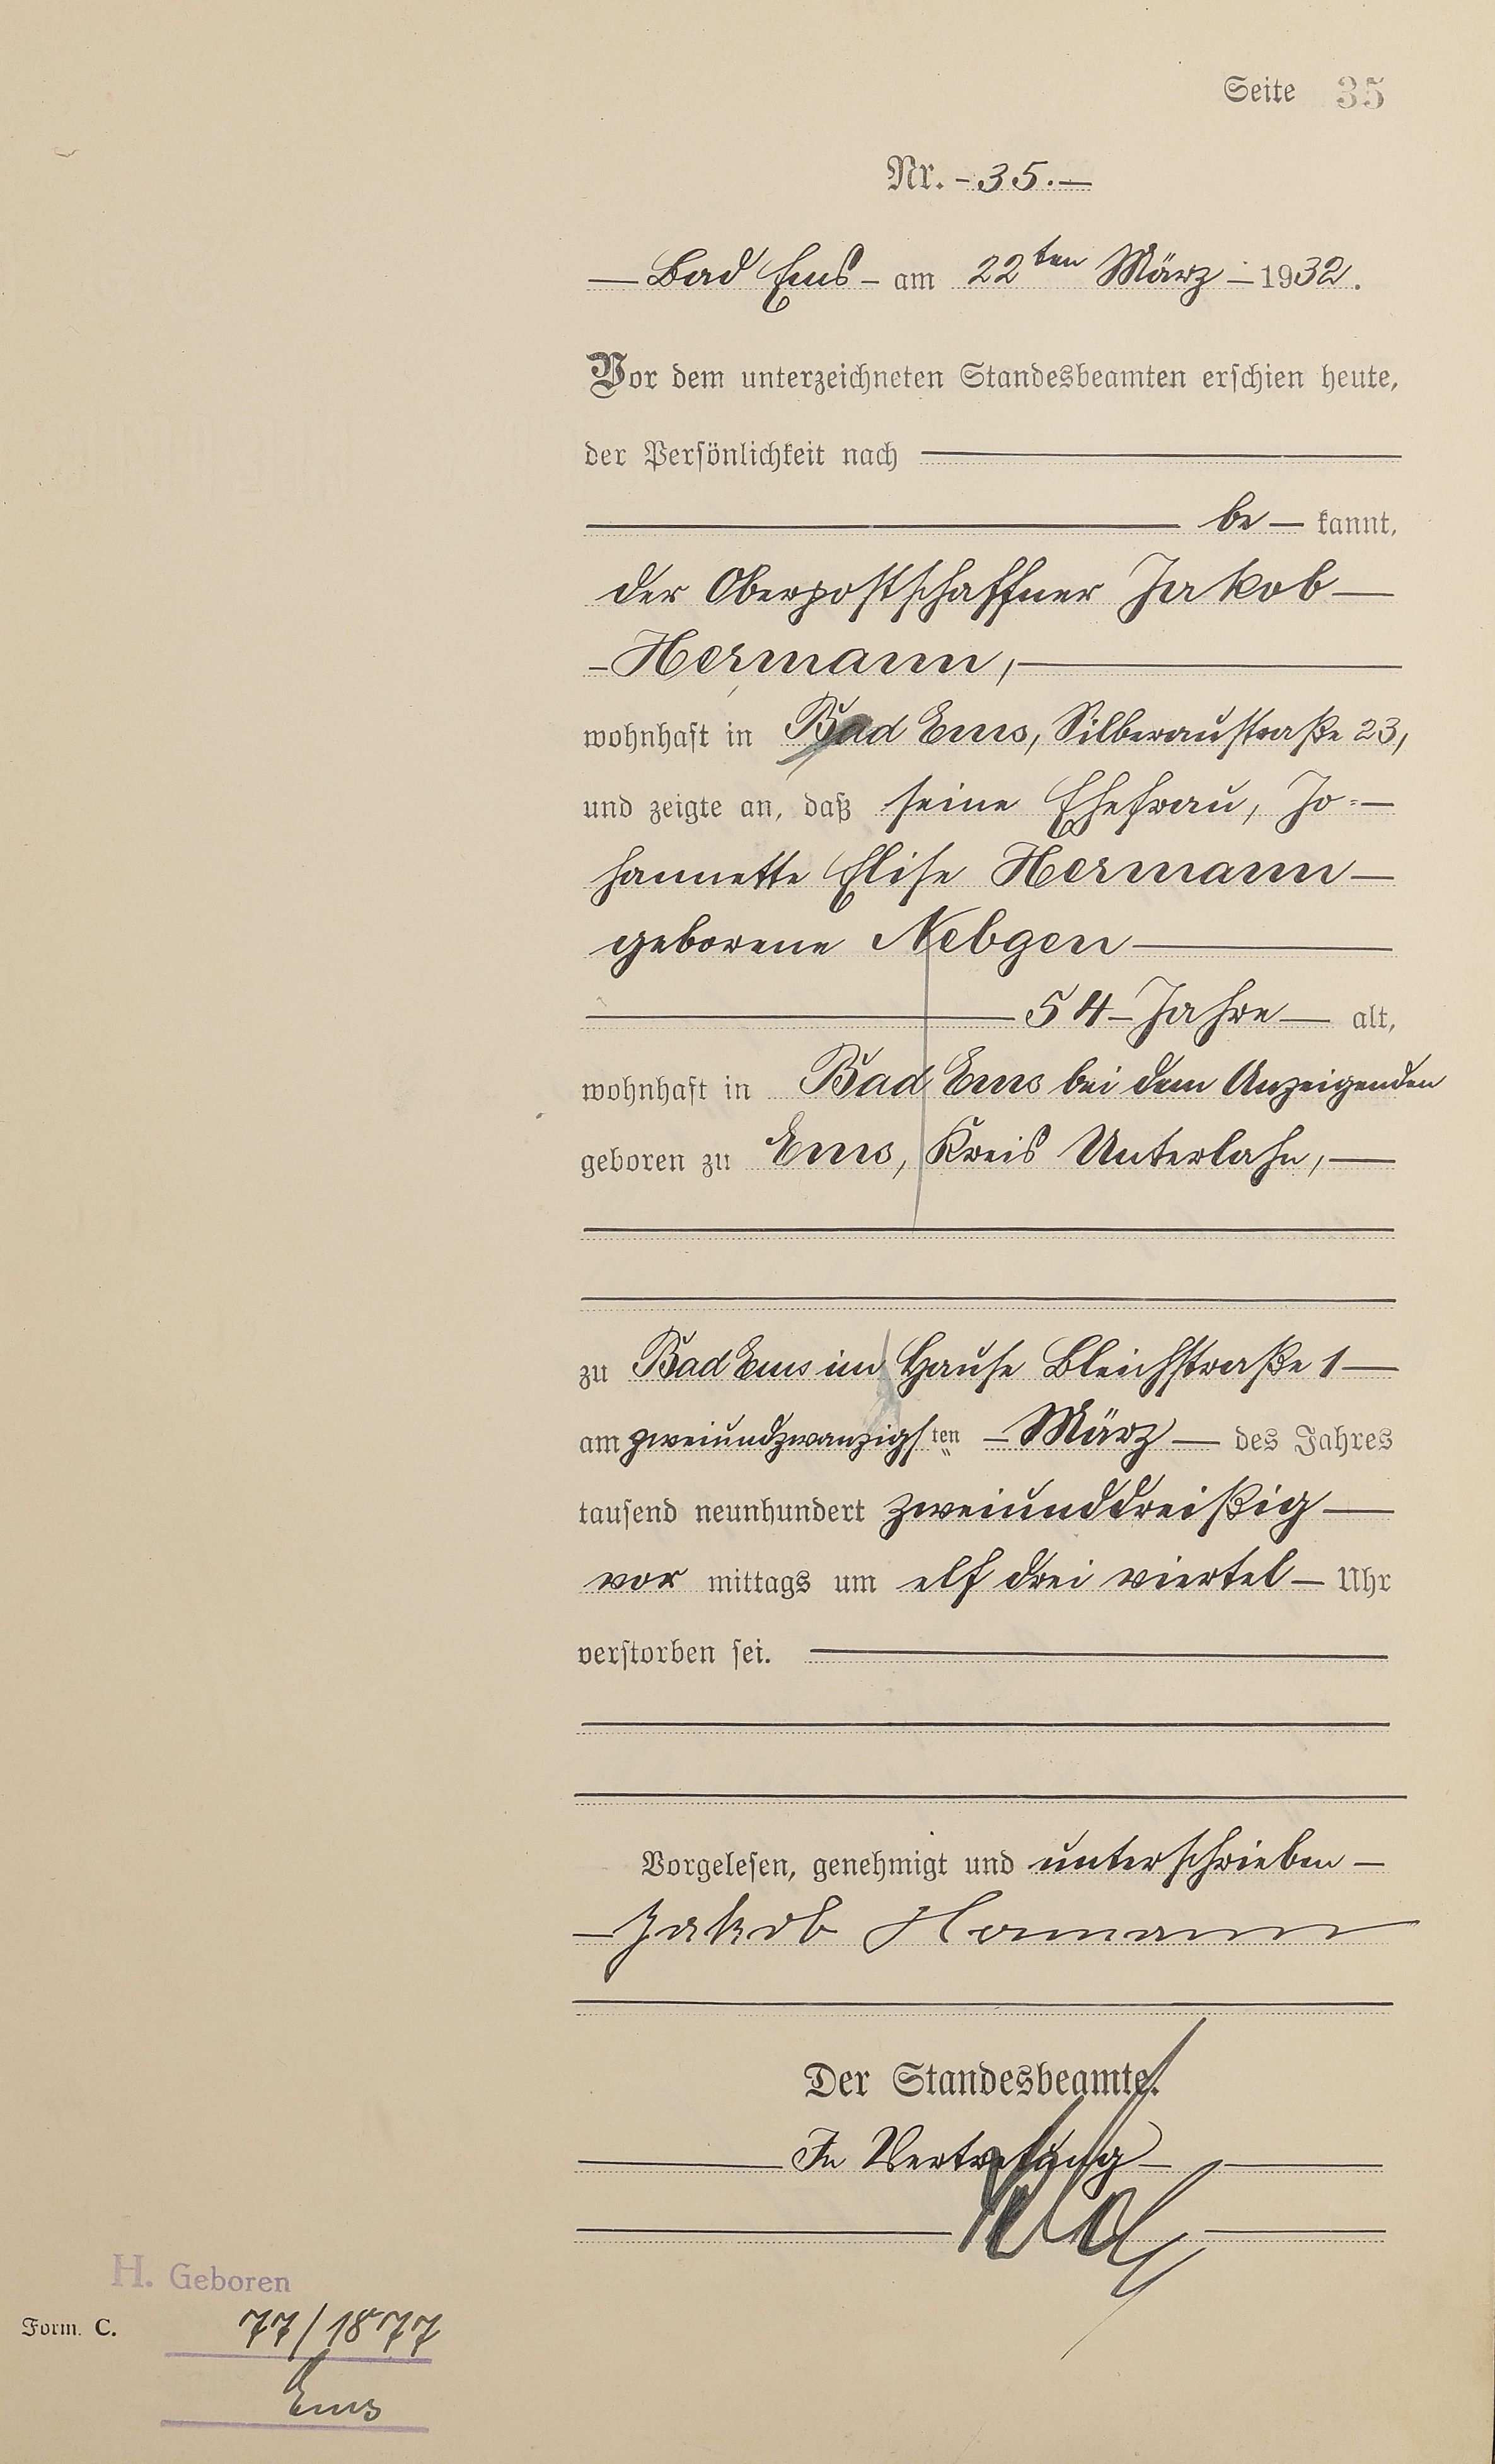 Seite 35
Nr. - 35. —
— Bad Ems - am 22ten März - 1932.
Vor dem unterzeichneten Standesbeamten erschien heute,
der Persönlichkeit nach
be — kannt,
der Oberpostschaffner Jakob —
- Hermann, —
wohnhaft in Bad Ems, Silberaustraße 23,
und zeigte an, daß seine Ehefrau, Jo=—
hannette Elise Hermann —
geborene Nebgen —
— 54 - Jahre — alt,
wohnhaft in Bad Ems bei dem Anzeigenden
geboren zu Ems, Kreis Unterlahn, —
zu Bad Ems im Hause Bleichstraße 1 —
am zweiundzwanzigsten - März — des Jahres
tausend neunhundert zweiunddreißig —
vor mittags um elf drei viertel — Uhr
verstorben sei. —
Vorgelesen, genehmigt und unterschrieben —
— Jakob Hermann
Der Standesbeamte.
In Vertretung
H. Geboren
Form. C. 77/1877
Ems